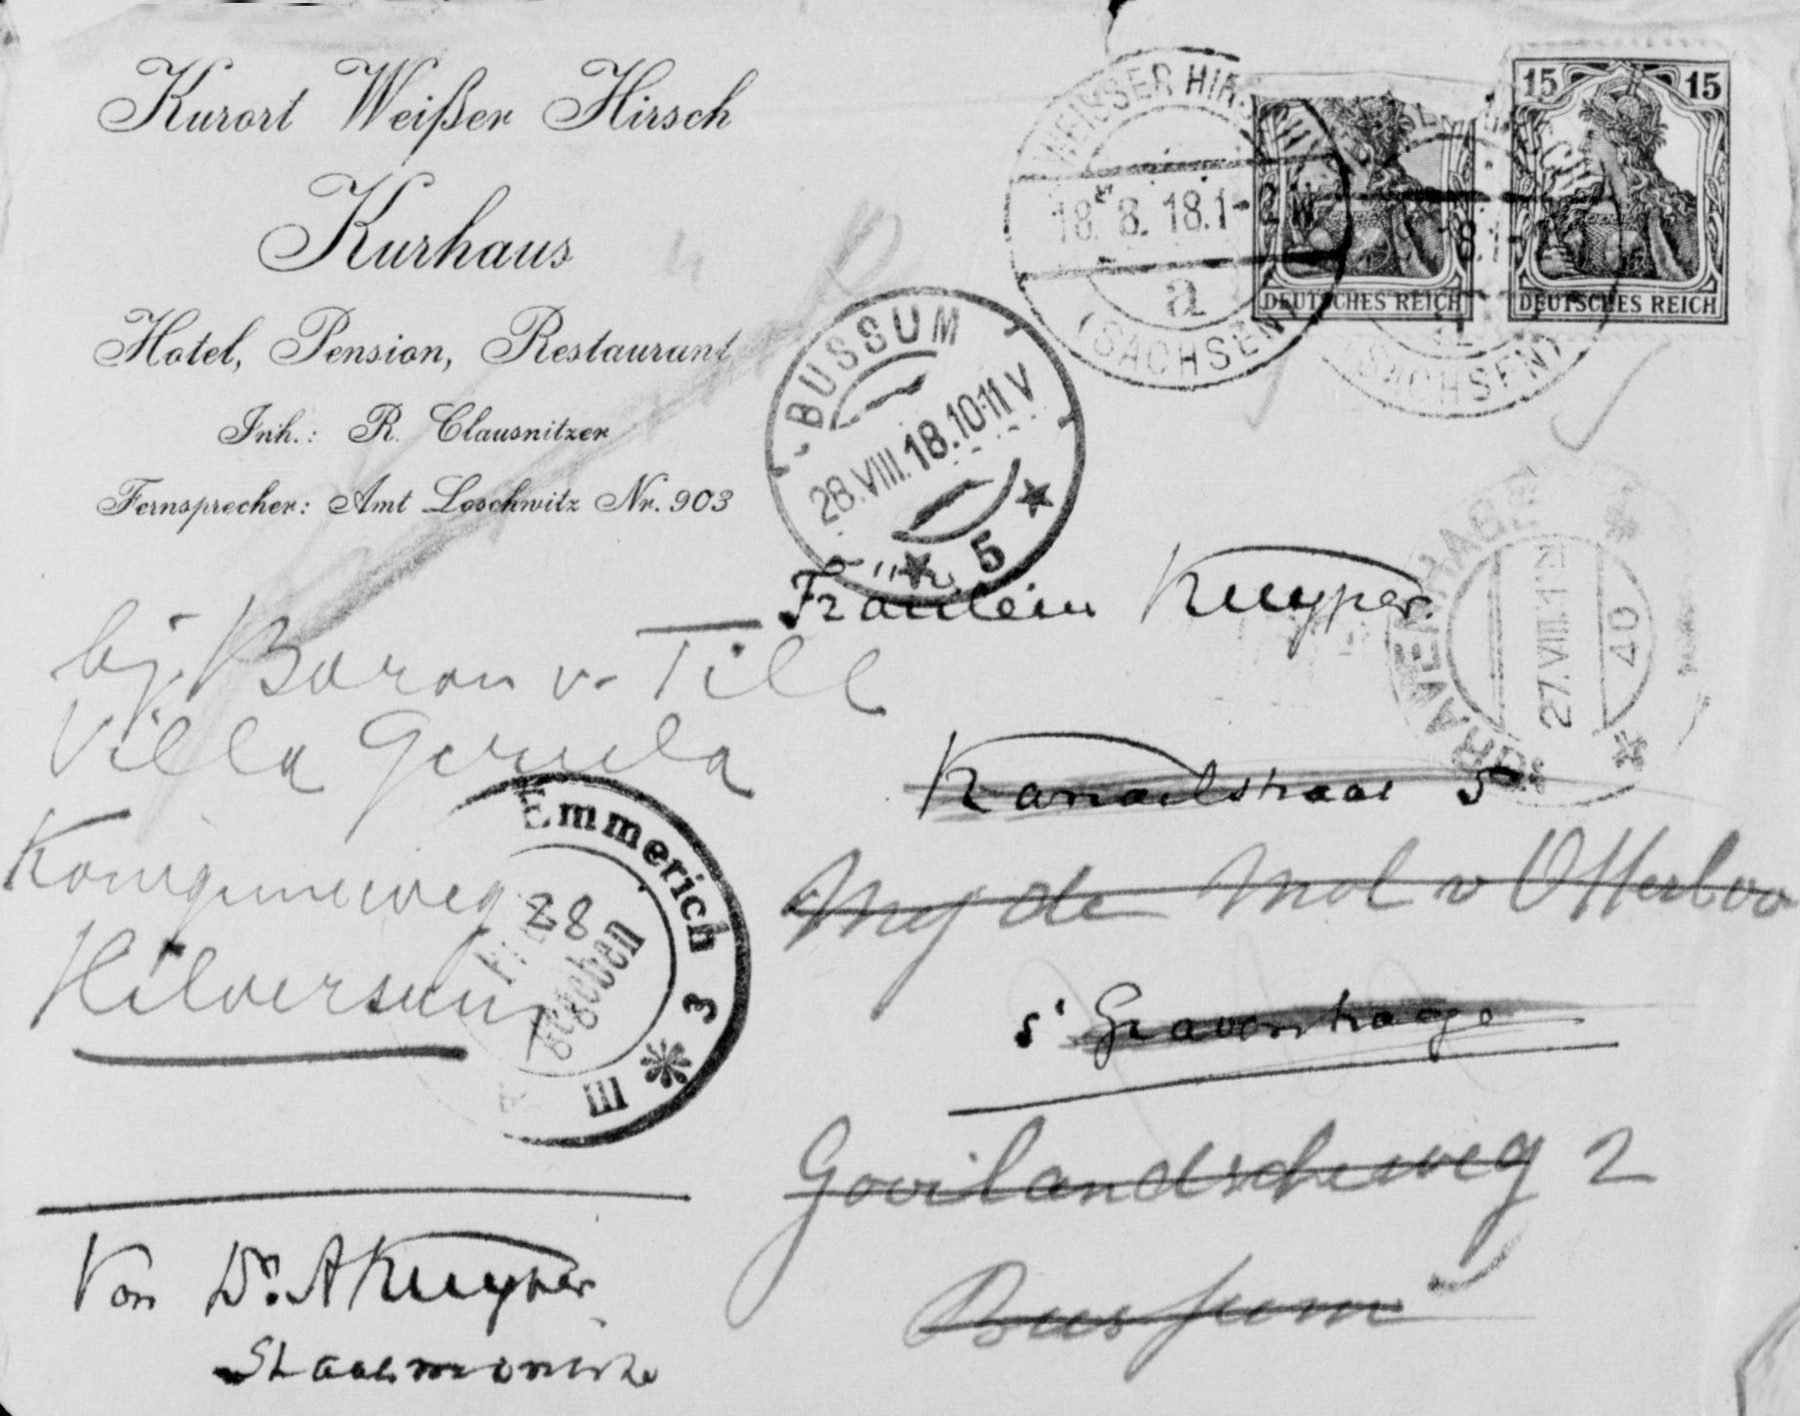 Kurort Weißer Hirsch
Kurhaus
Hotel, Pension, Restaurant
Inh.: R. Clausnitzer
Fernsprecher: Amt Loschwitz Nr. 903
WEISSER HIRSCH
18. 8. 18. 1-2 N
a
(SACHSEN)
DEUTSCHES REICH
15 15
DEUTSCHES REICH
(SACHSEN)
BUSSUM
28.VIII.18.10-11 V
5
'S GRAVENHAGE
27.VIII.1
40
Fräulein Kuyper.
Kanaalstraat 5
Mej de Mol v Otterloo
s' Gravenhage
Gooilandscheweg 2
Bussum
bij Baron v. Till
Villa Gerula
Koniginneweg
Hilversum
Emmerich 3
28
gegeben
m
Von Dr. A Kuyper
Staatsminister